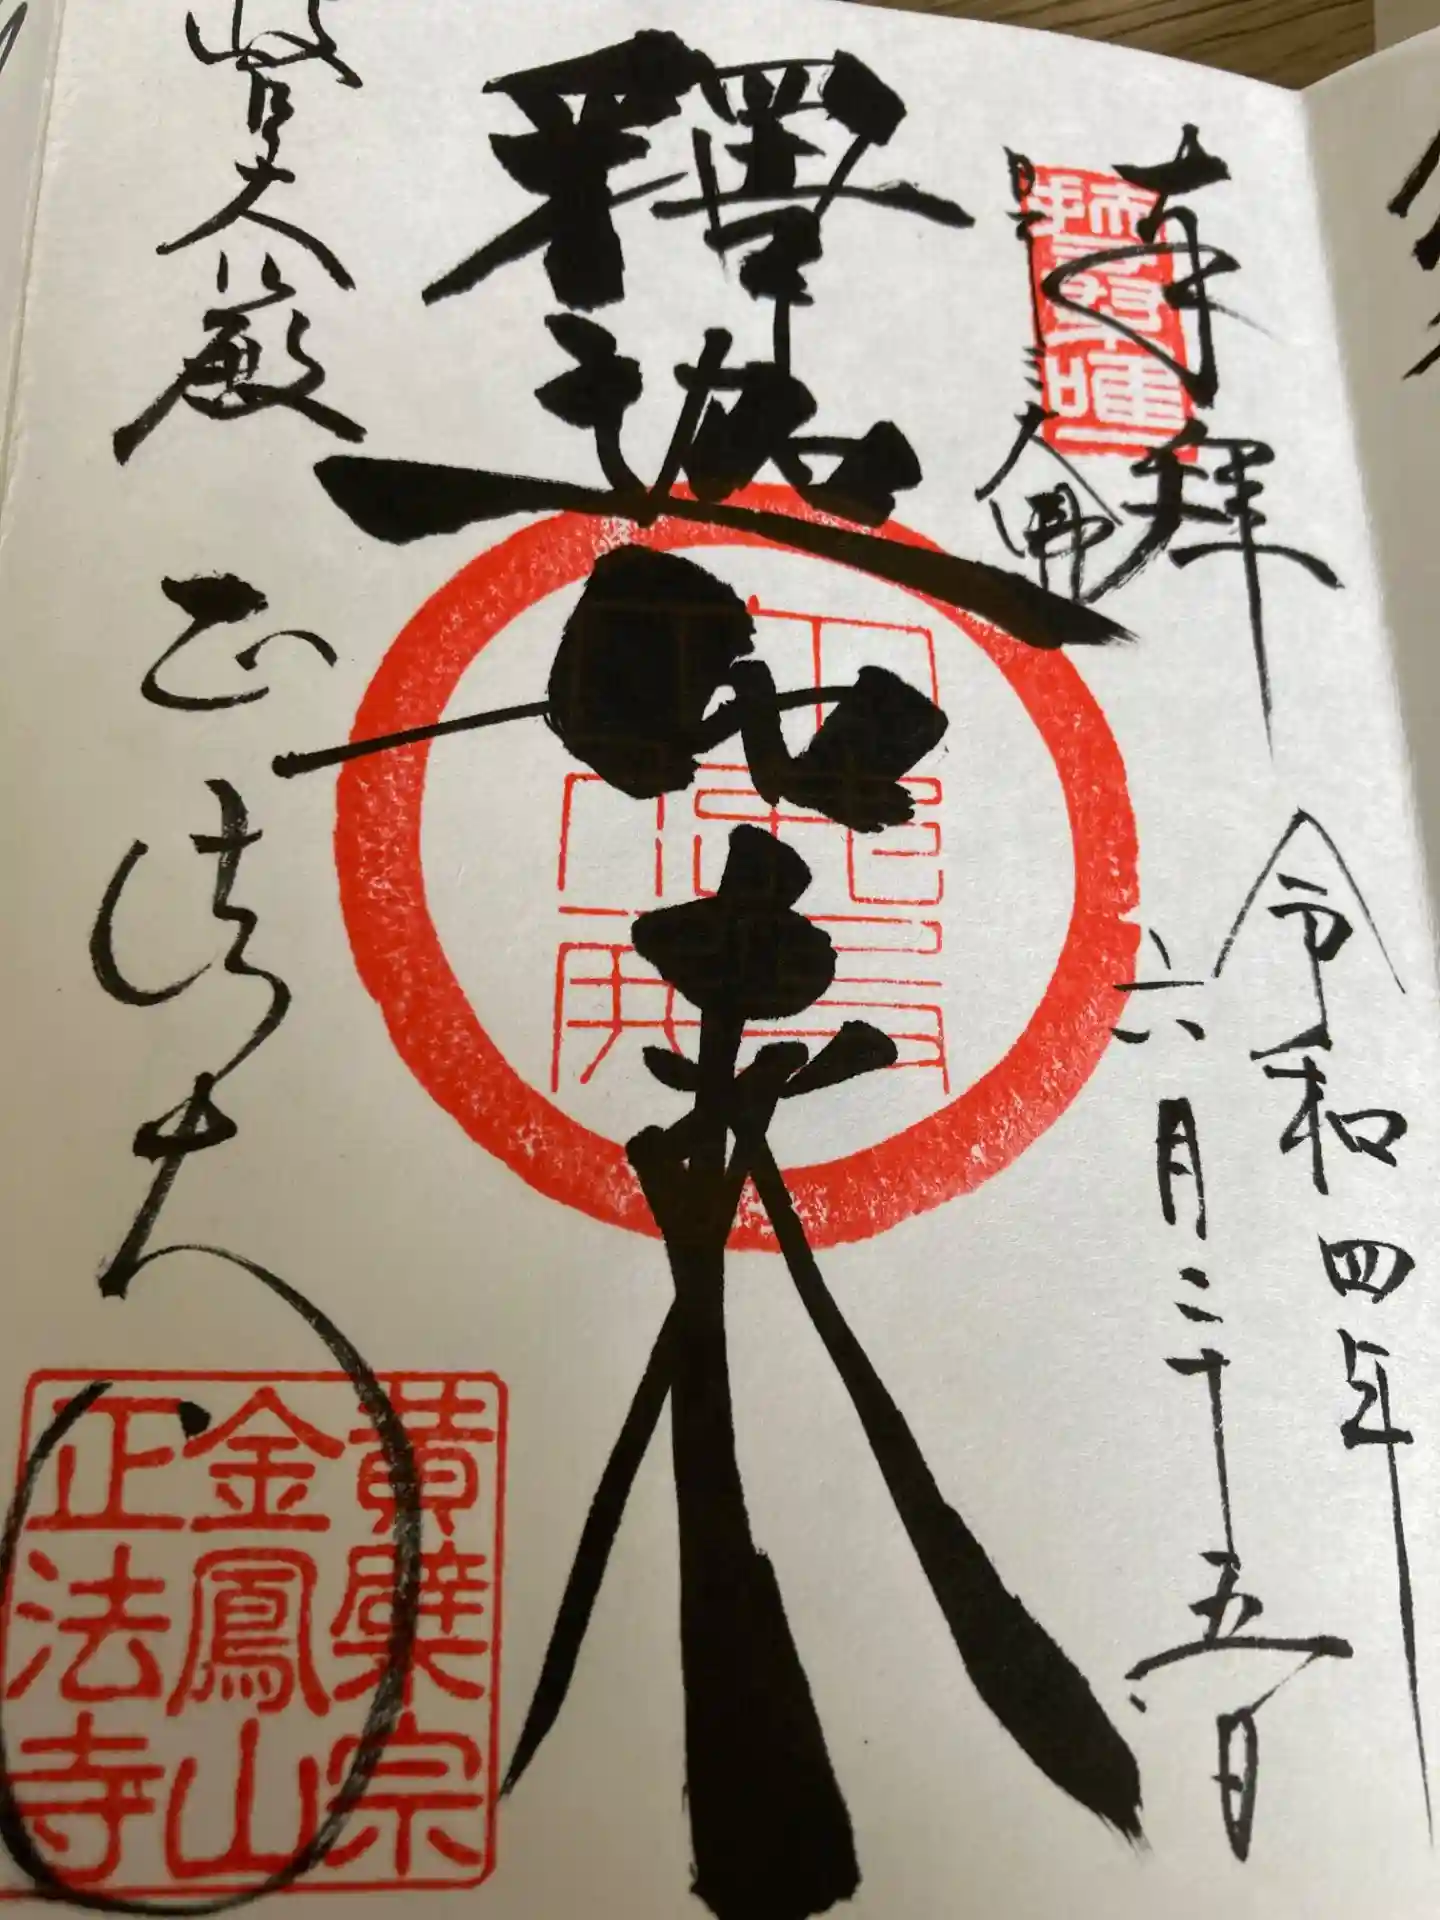 奉拝
令和四年
六月二十五日
日本三大佛
釋迦如来
岐阜大仏殿
正法寺
黄檗宗
金鳳山
正法寺